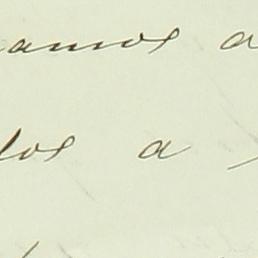 amos a
los a